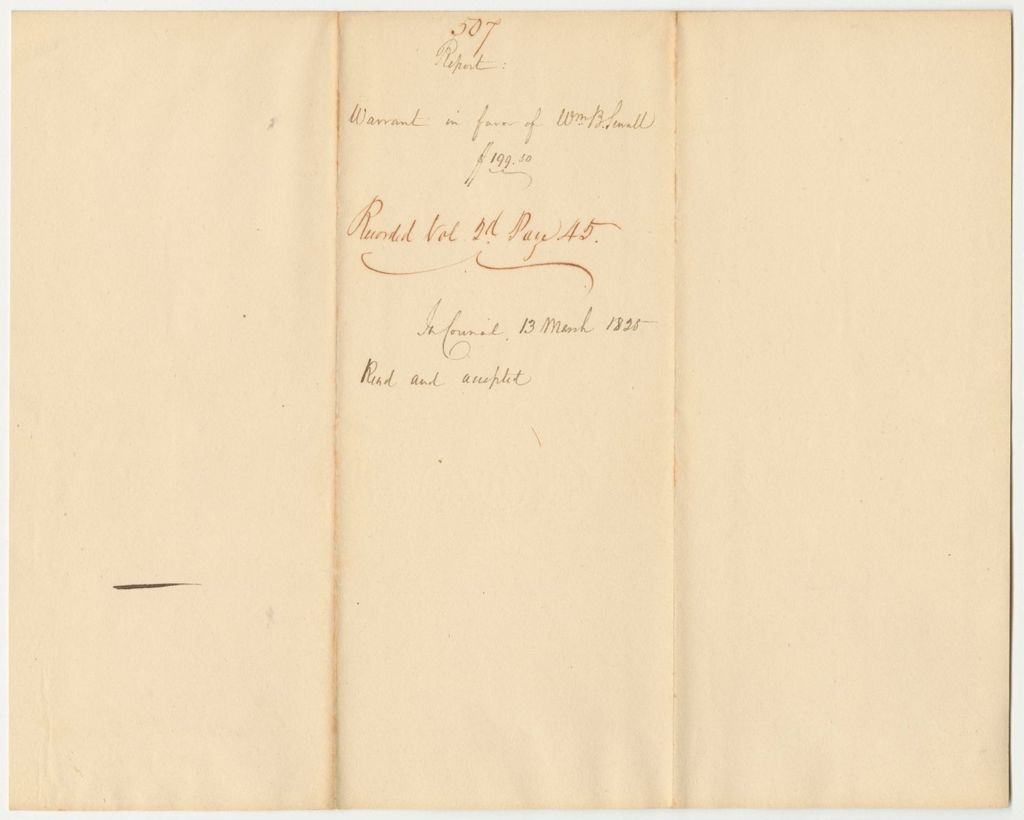 507
Report:
Warrant in favor of Wm B. Sewall
$199.50
Recorded Vol. 2d. Page 45.
In Council, 13 March 1825
Read and accepted